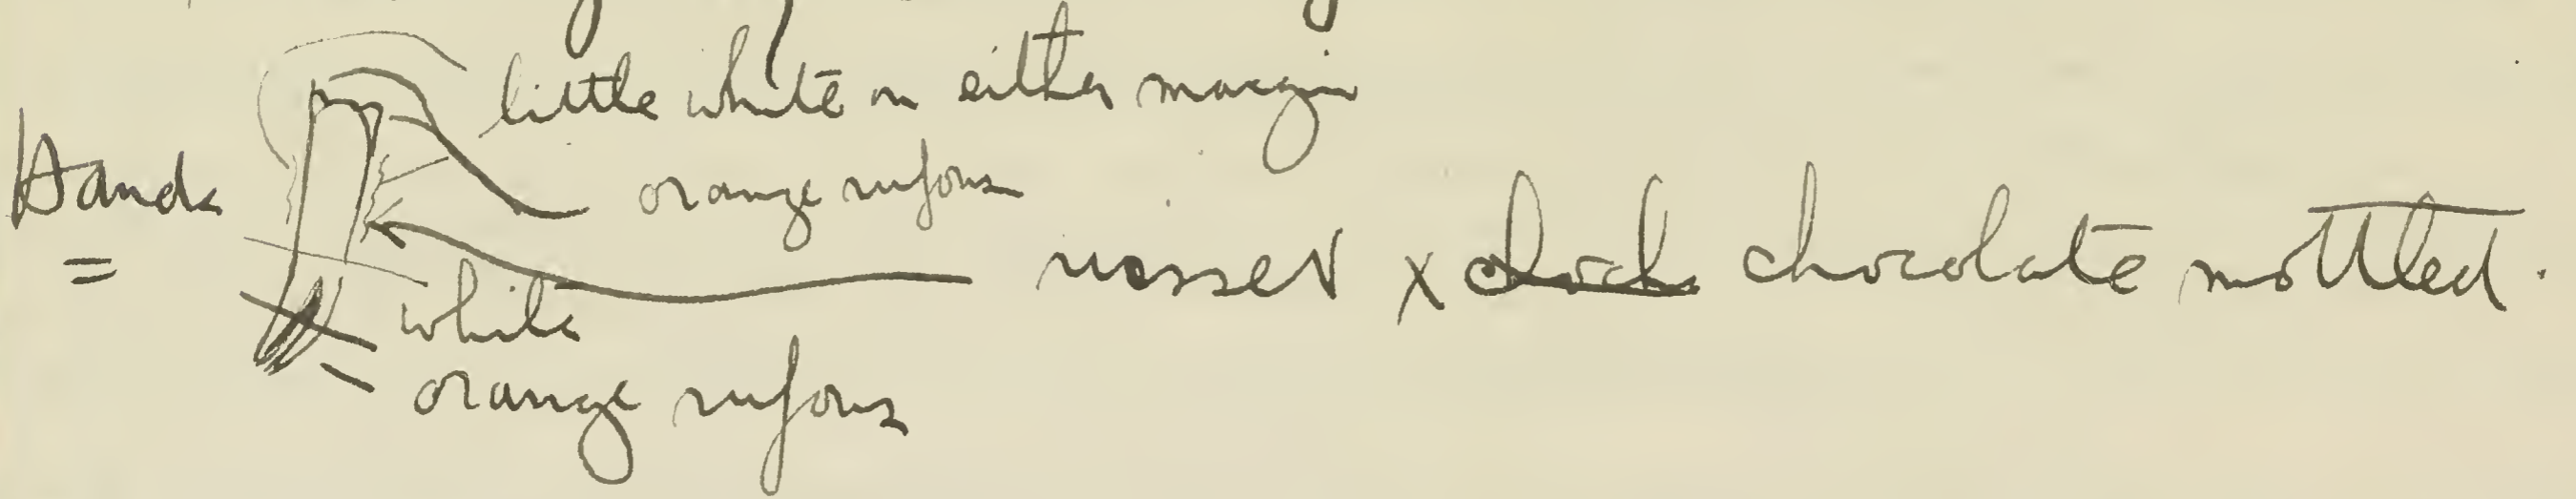 little white on either margin
orange rufous
Hands
russet x chock chocolate mottled.
white
orange rufous